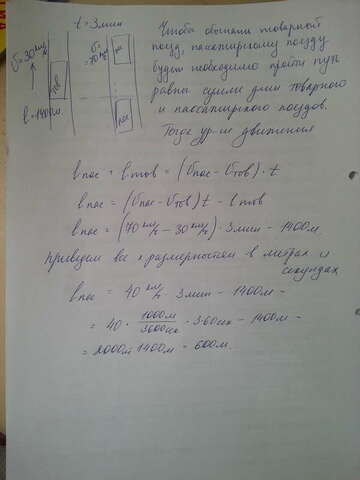 t = 3 мин
Чтобы обогнать товарной
поезд, пассажирскому поезду
будет необходимо пройти путь
равны сумме длин товарного
и пассажирского поездов.
Тогда ур-ие движения
σ = 30 км/ч
σ = 70 км/ч
тов
пас
пас
l = 1400 м
l пас + l тов = (σпас - σтов) · t
l пас = (σпас - σтов) t - l тов
l пас = (70 км/ч - 30 км/ч) · 3 мин - 1400 м
приведем все к размерностям в метрах и
секундах
l пас = 40 км/ч · 3 мин - 1400 м =
= 40 · 1000 м / 3600 сек · 3·60 сек - 1400 м =
= 2000 м 1400 м = 600 м.